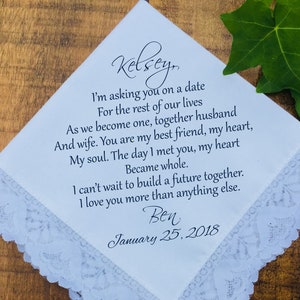 Kelsey,
I'm asking you on a date
For the rest of our lives
As we become one, together husband
And wife. You are my best friend, my heart,
My soul. The day I met you, my heart
Became whole.
I can't wait to build a future together.
I love you more than anything else.
Ben
January 25, 2018